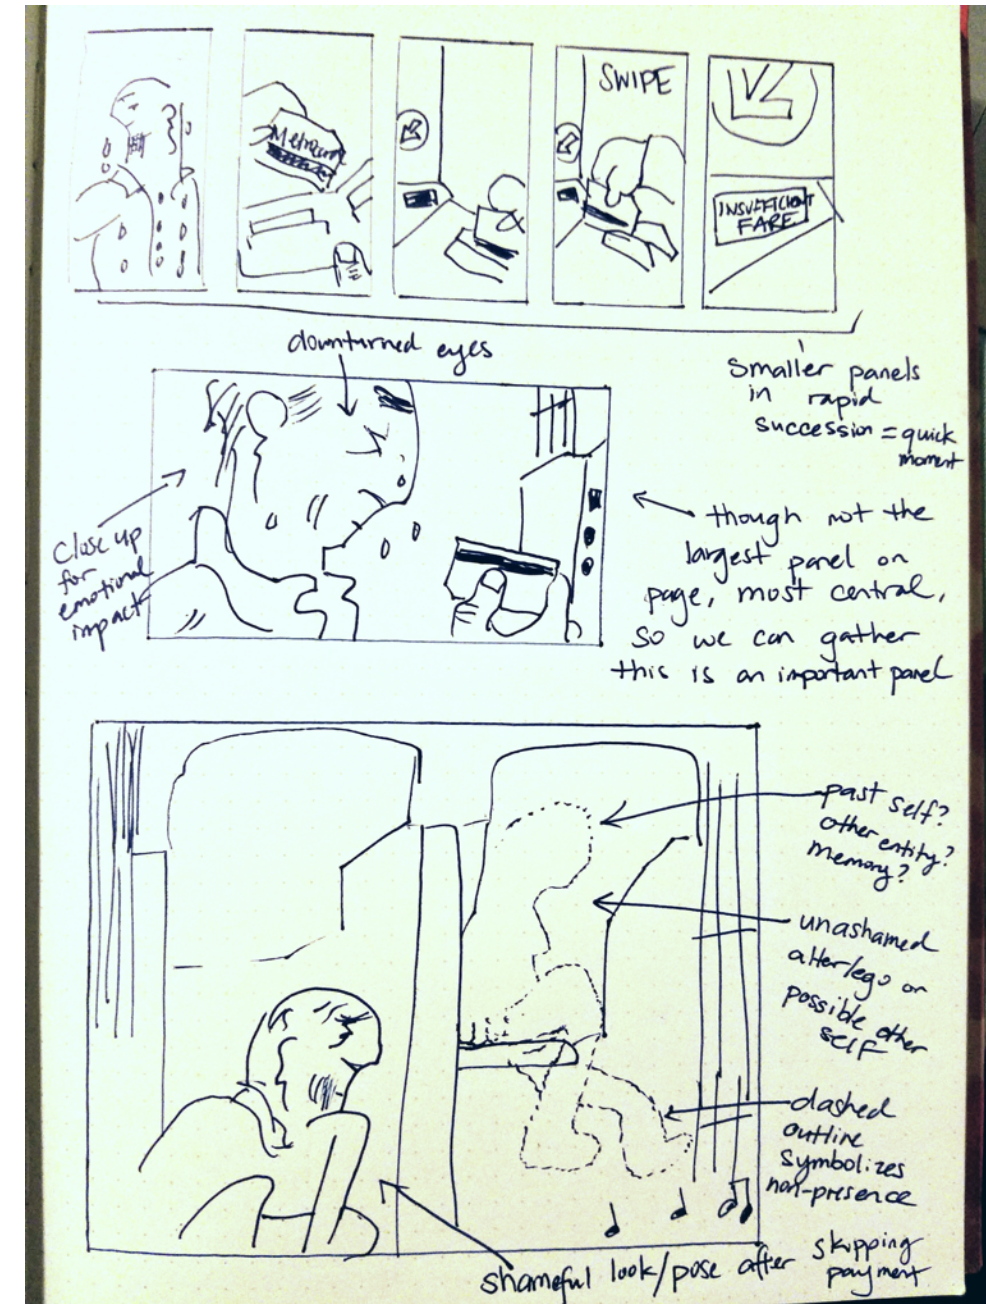 SWIPE
Metrocard
INSUFFICIENT
FARE
downturned eyes
smaller panels
in rapid
succession = quick
moment
close up
for
emotional
impact
though not the
largest panel on
page, most central,
so we can gather
this is an important panel
past self?
other entity?
memory?
unashamed
alter/ego or
possible other
self
dashed
outline
symbolizes
non-presence
shameful look/pose after skipping
payment